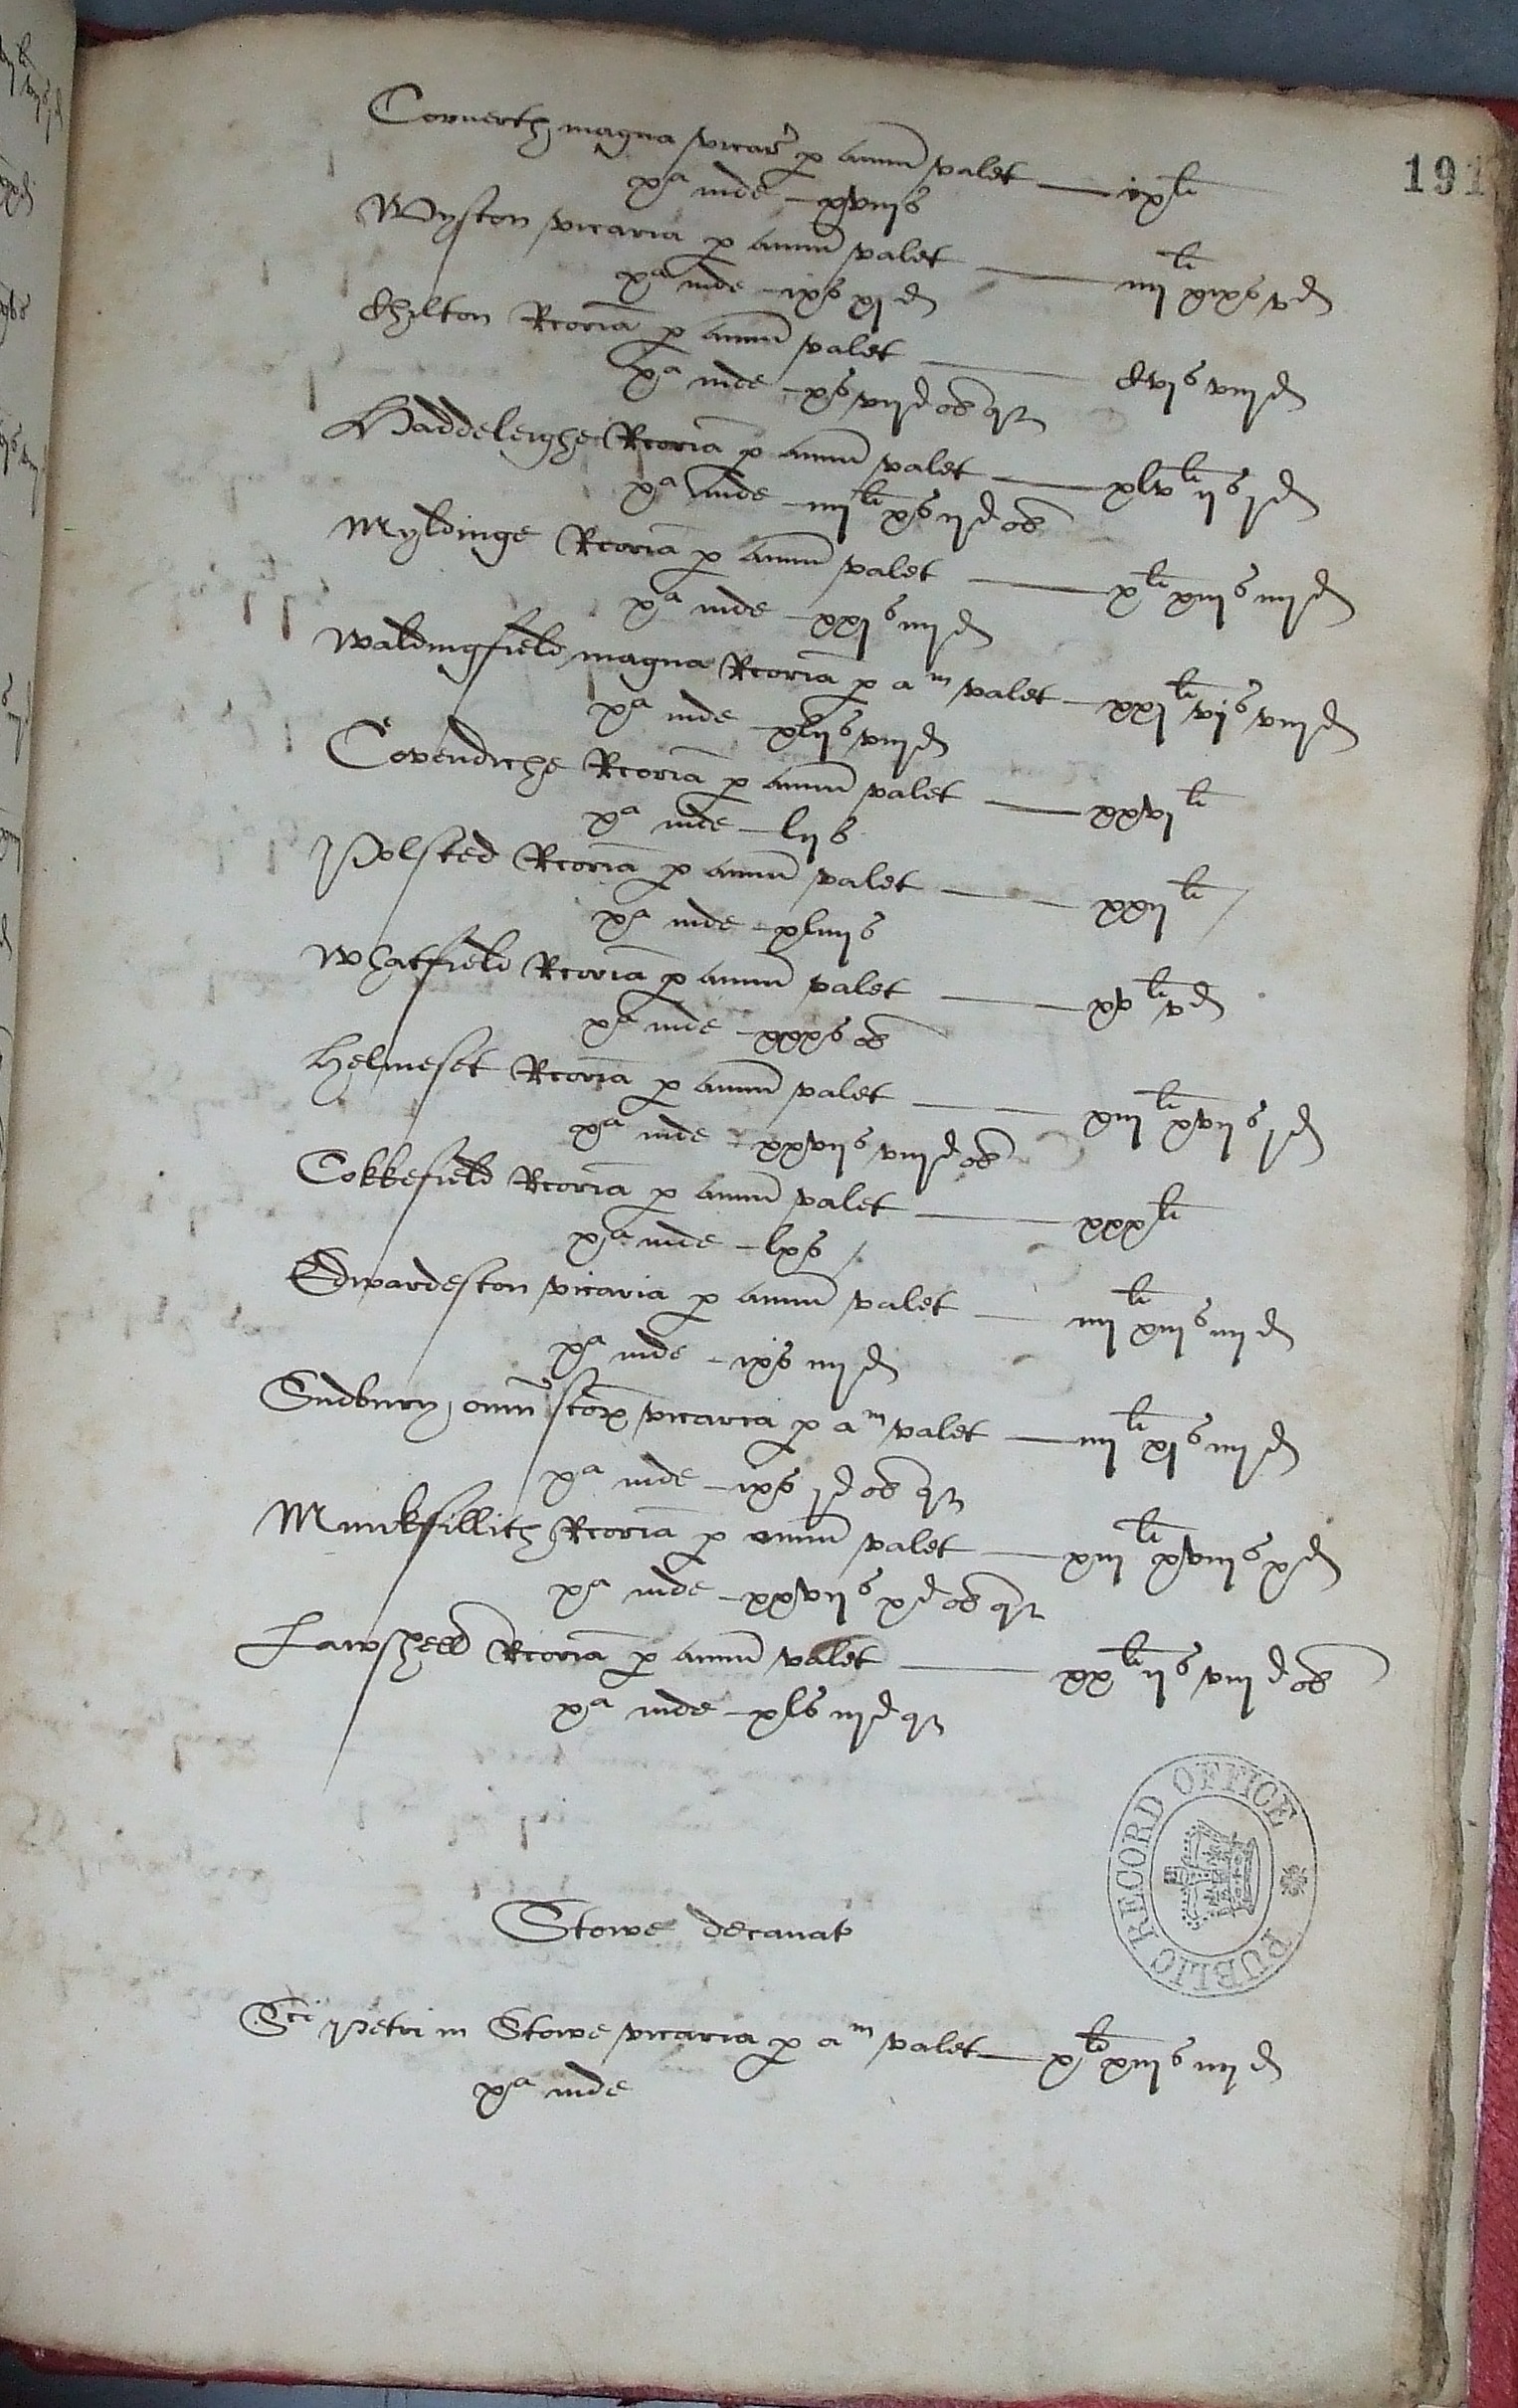 191
Cornerth magna vicar p annu valet — ixli
xa inde — xviijs
Wyston vicaria p annu valet — iiijli xixs vd
xa inde — ixs xjd
Chilton Rcoria p annu valet — Cvjs viijd
xa inde — xs viijd ob qr
Haddeleighe Rcoria p annu valet — xlvli ijs jd
xa inde — iiijli xs ijd ob
Myldinge Rcoria p annu valet — xli xiijs iiijd
xa inde — xxjs iiijd
Waldingfield magna Rcoria p am valet — xxjli vjs viijd
xa inde — xlijs viijd
Covendiche Rcoria p annu valet — xxvjli
xa inde — lijs
Polsted Rcoria p annu valet — xxijli
xa inde — xliiijs
Whatfield Rcoria p annu valet — xvli vd
xa inde — xxxs ob
Helmeset Rcoria p annu valet — xiijli xvijs jd
xa inde — xxvijs viijd ob
Cokkefield Rcoria p annu valet — xxxli
xa inde — lxs
Edwardeston vicaria p annu valet — iiijli xiijs iiijd
xa inde — ixs iiijd
Sudbury omn scorx vicaria p am valet — iiijli xjs iiijd
xa inde — ixs jd ob qr
Munckfillith Rcoria p annu valet — xiijli xviijs xd
xa inde — xxvijs xd ob qr
Lawsheed Rcoria p annu valet — xxli ijs viijd ob
xa inde — xls iijd qr
Stowe decanat
Sci Petri in Stowe vicaria p am valet — xli xiijs iiijd
xa inde
PUBLIC RECORD OFFICE